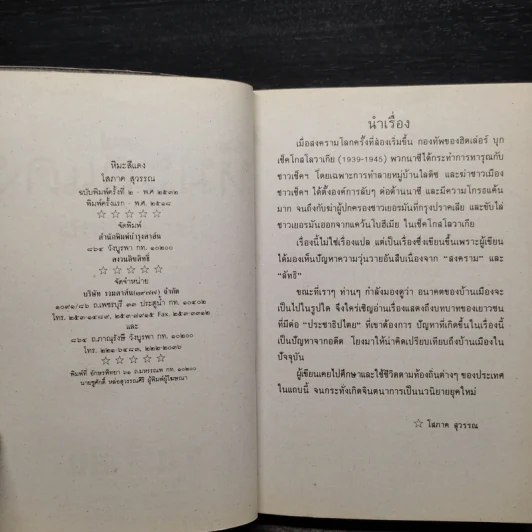 หิมะสีแดง
โสภาค สุวรรณ
ฉบับพิมพ์ครั้งที่ ๒ - พ.ศ ๒๕๓๒
พิมพ์ครั้งแรก - พ.ศ. ๒๕๑๘
☆ ☆ ☆ ☆ ☆
จัดพิมพ์
สำนักพิมพ์บำรุงสาส์น
๘๖๔ วังบูรพา กท. ๑๐๒๐๐
สงวนลิขสิทธิ์
☆ ☆ ☆ ☆ ☆
จัดจำหน่าย
บริษัท รวมสาส์น(๑๙๗๗) จำกัด
๑๐๙๑/๘๖ ถ.เพชรบุรี ๓๓ ประตูน้ำ กท. ๑๐๔๐๒
โทร. ๒๕๓-๑๔๘๙, ๒๕๓-๙๘๑๕ Fax. ๒๕๕-๓๓๑๒
และ
๘๖๔ ถ.ภาณุรังษี วังบูรพา กท. ๑๐๒๐๐
โทร. ๒๒๑-๖๔๘๓, ๒๒๒-๒๐๓๖
☆ ☆ ☆ ☆ ☆
พิมพ์ที่ อักษรพิทยา ๑๑ ถ.มหรรณพ กท. ๑๐๒๐๐
นายชูศักดิ์ หล่อสุวรรณศิริ ผู้พิมพ์ผู้โฆษณา
นำเรื่อง
เมื่อสงครามโลกครั้งที่สองเริ่มขึ้น กองทัพของฮิตเล่อร์ บุก
เช็คโกสโลวาเกีย (1939-1945) พวกนาซีได้กระทำการทารุณกับ
ชาวเช็คฯ โดยเฉพาะการทำลายหมู่บ้านไลดิซ และฆ่าชาวเมือง
ชาวเช็คฯ ได้ตั้งองค์การลับๆ ต่อต้านนาซี และมีความโกรธแค้น
มาก จนถึงกับฆ่าผู้ปกครองชาวเยอรมันที่กรุงปราคเลีย และขับไล่
ชาวเยอรมันออกจากแคว้นโบฮีเมีย ในเช็คโกสโลวาเกีย
เรื่องนี้ไม่ใช่เรื่องแปล แต่เป็นเรื่องซึ่งเขียนขึ้นเพราะผู้เขียน
ได้มองเห็นปัญหาความวุ่นวายอันสืบเนื่องจาก "สงคราม" และ
"ลัทธิ"
ขณะที่เราๆ ท่านๆ กำลังมองดูว่า อนาคตของบ้านเมืองจะ
เป็นไปในรูปใด จึงใคร่เชิญอ่านเรื่องแสดงถึงบทบาทของเยาวชน
ที่มีต่อ "ประชาธิปไตย" ที่เขาต้องการ ปัญหาที่เกิดขึ้นในเรื่องนี้
เป็นปัญหาจากอดีต โยงมาให้น่าคิดเปรียบเทียบถึงบ้านเมืองใน
ปัจจุบัน
ผู้เขียนเคยไปศึกษาและใช้ชีวิตตามท้องถิ่นต่างๆ ของประเทศ
ในแถบนี้ จนกระทั่งเกิดจินตนาการเป็นนวนิยายยุคใหม่
☆ โสภาค สุวรรณ